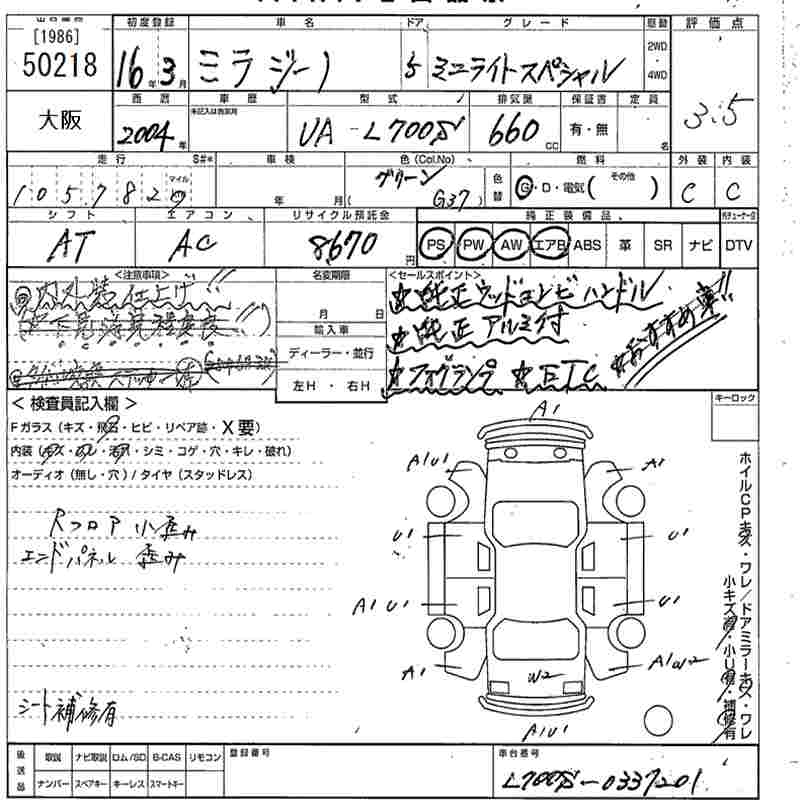 [1986] 初度登録 車名 ドア グレード 駆動 評価点
50218 16年3月 ミラジーノ 5 ミニライトスペシャル 2WD・4WD 3.5
大阪 西暦 車歴 型式 排気量 保証書 定員
未記入は自家用
2004年 UA-L700S 660cc 有・無 名
走行 S#* 車検 色(Col.No) 燃料 外装 内装
105782 マイル 年 月 グリーン (G37) 色替 G・D・電気( その他 ) C C
シフト エアコン リサイクル預託金 純正装備品
AT AC 8670円 PS PW AW エアB ABS 革 SR ナビ DTV
<注意事項> 名変期限 <セールスポイント>
内外装仕上げ!! 月 日 ☆純正ウッドコンビハンドル
輸入車 ☆純正アルミ付
ディーラー・並行 ☆おすすめ車!!
左H・右H ☆フォグランプ ☆ETC
<検査員記入欄> キーロック
Fガラス(キズ・飛石・ヒビ・リペア跡・X要)
内装(キズ・ヨゴレ・汚れ・シミ・コゲ・穴・キレ・破れ)
オーディオ(無し・穴)/タイヤ(スタッドレス)
Rフロア小歪み
エンドパネル歪み
シート補修有
A1
A1U1 A1
U1 U1
A1 U1 U1
A1 W2 A1W2
A1U1
ホイルCPキズ・ワレ/ドアミラーキズ・ワレ
小キズ有・小U有・補修有
後送品 取説 ナビ取説 ロム/SD B-CAS リモコン 登録番号 車台番号
ナンバー スペアキー キーレス スマートキー L700S-0337201